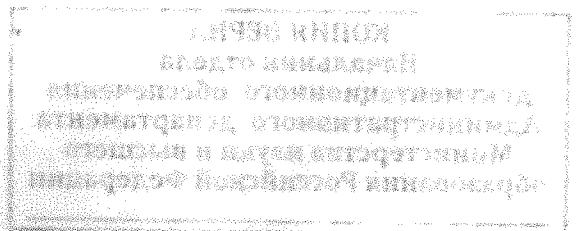 КОПИЯ ВЕРНА
Начальник отдела
документационного обеспечения
Административного департамента
Министерства науки и высшего
образования Российской Федерации